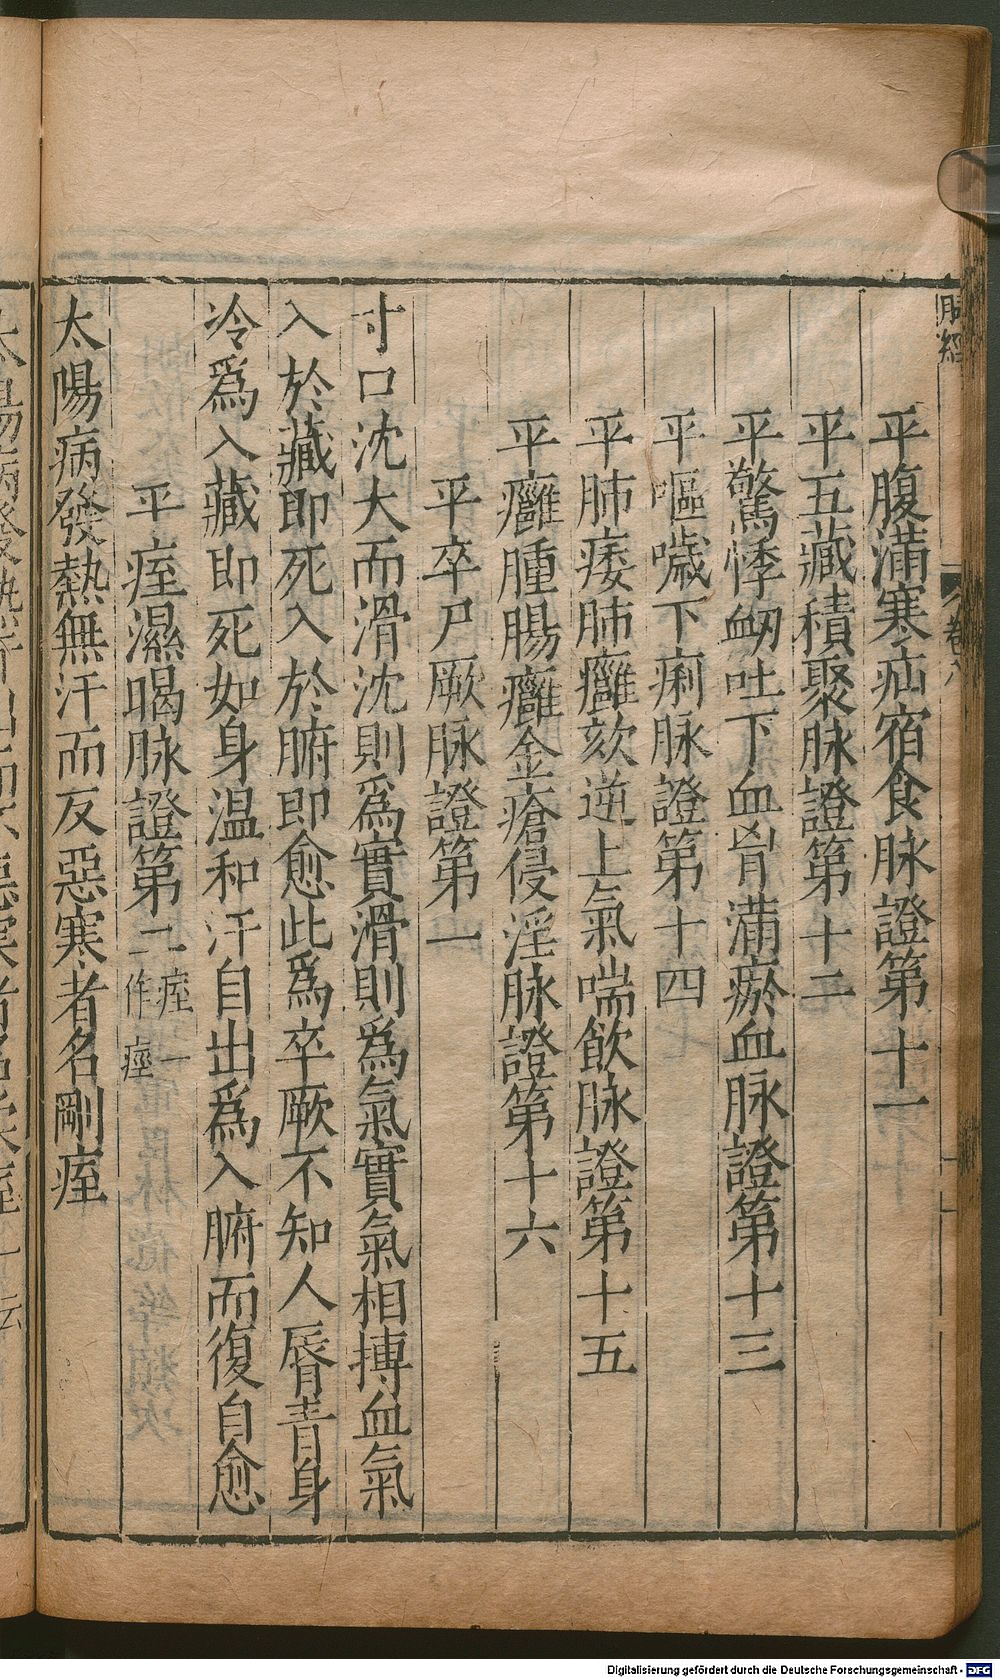 脉經
卷八
平腹滿寒疝宿食脉證第十一
平五藏積聚脉證第十二
平驚悸衂吐下血胷滿瘀血脉證第十三
平嘔噦下痢脉證第十四
平肺痿肺癰欬逆上氣喘飲脉證第十五
平癰腫腸癰金瘡侵淫脉證第十六
平卒尸厥脉證第一
寸口沈大而滑沈則爲實滑則爲氣實氣相搏血氣
入於藏即死入於腑即愈此爲卒厥不知人脣青身
冷爲入藏即死如身温和汗自出爲入腑而復自愈
平痓濕暍脉證第二 痓一作痙
太陽病發熱無汗而反惡寒者名剛痓
Digitalisierung gefördert durch die Deutsche Forschungsgemeinschaft - DFG